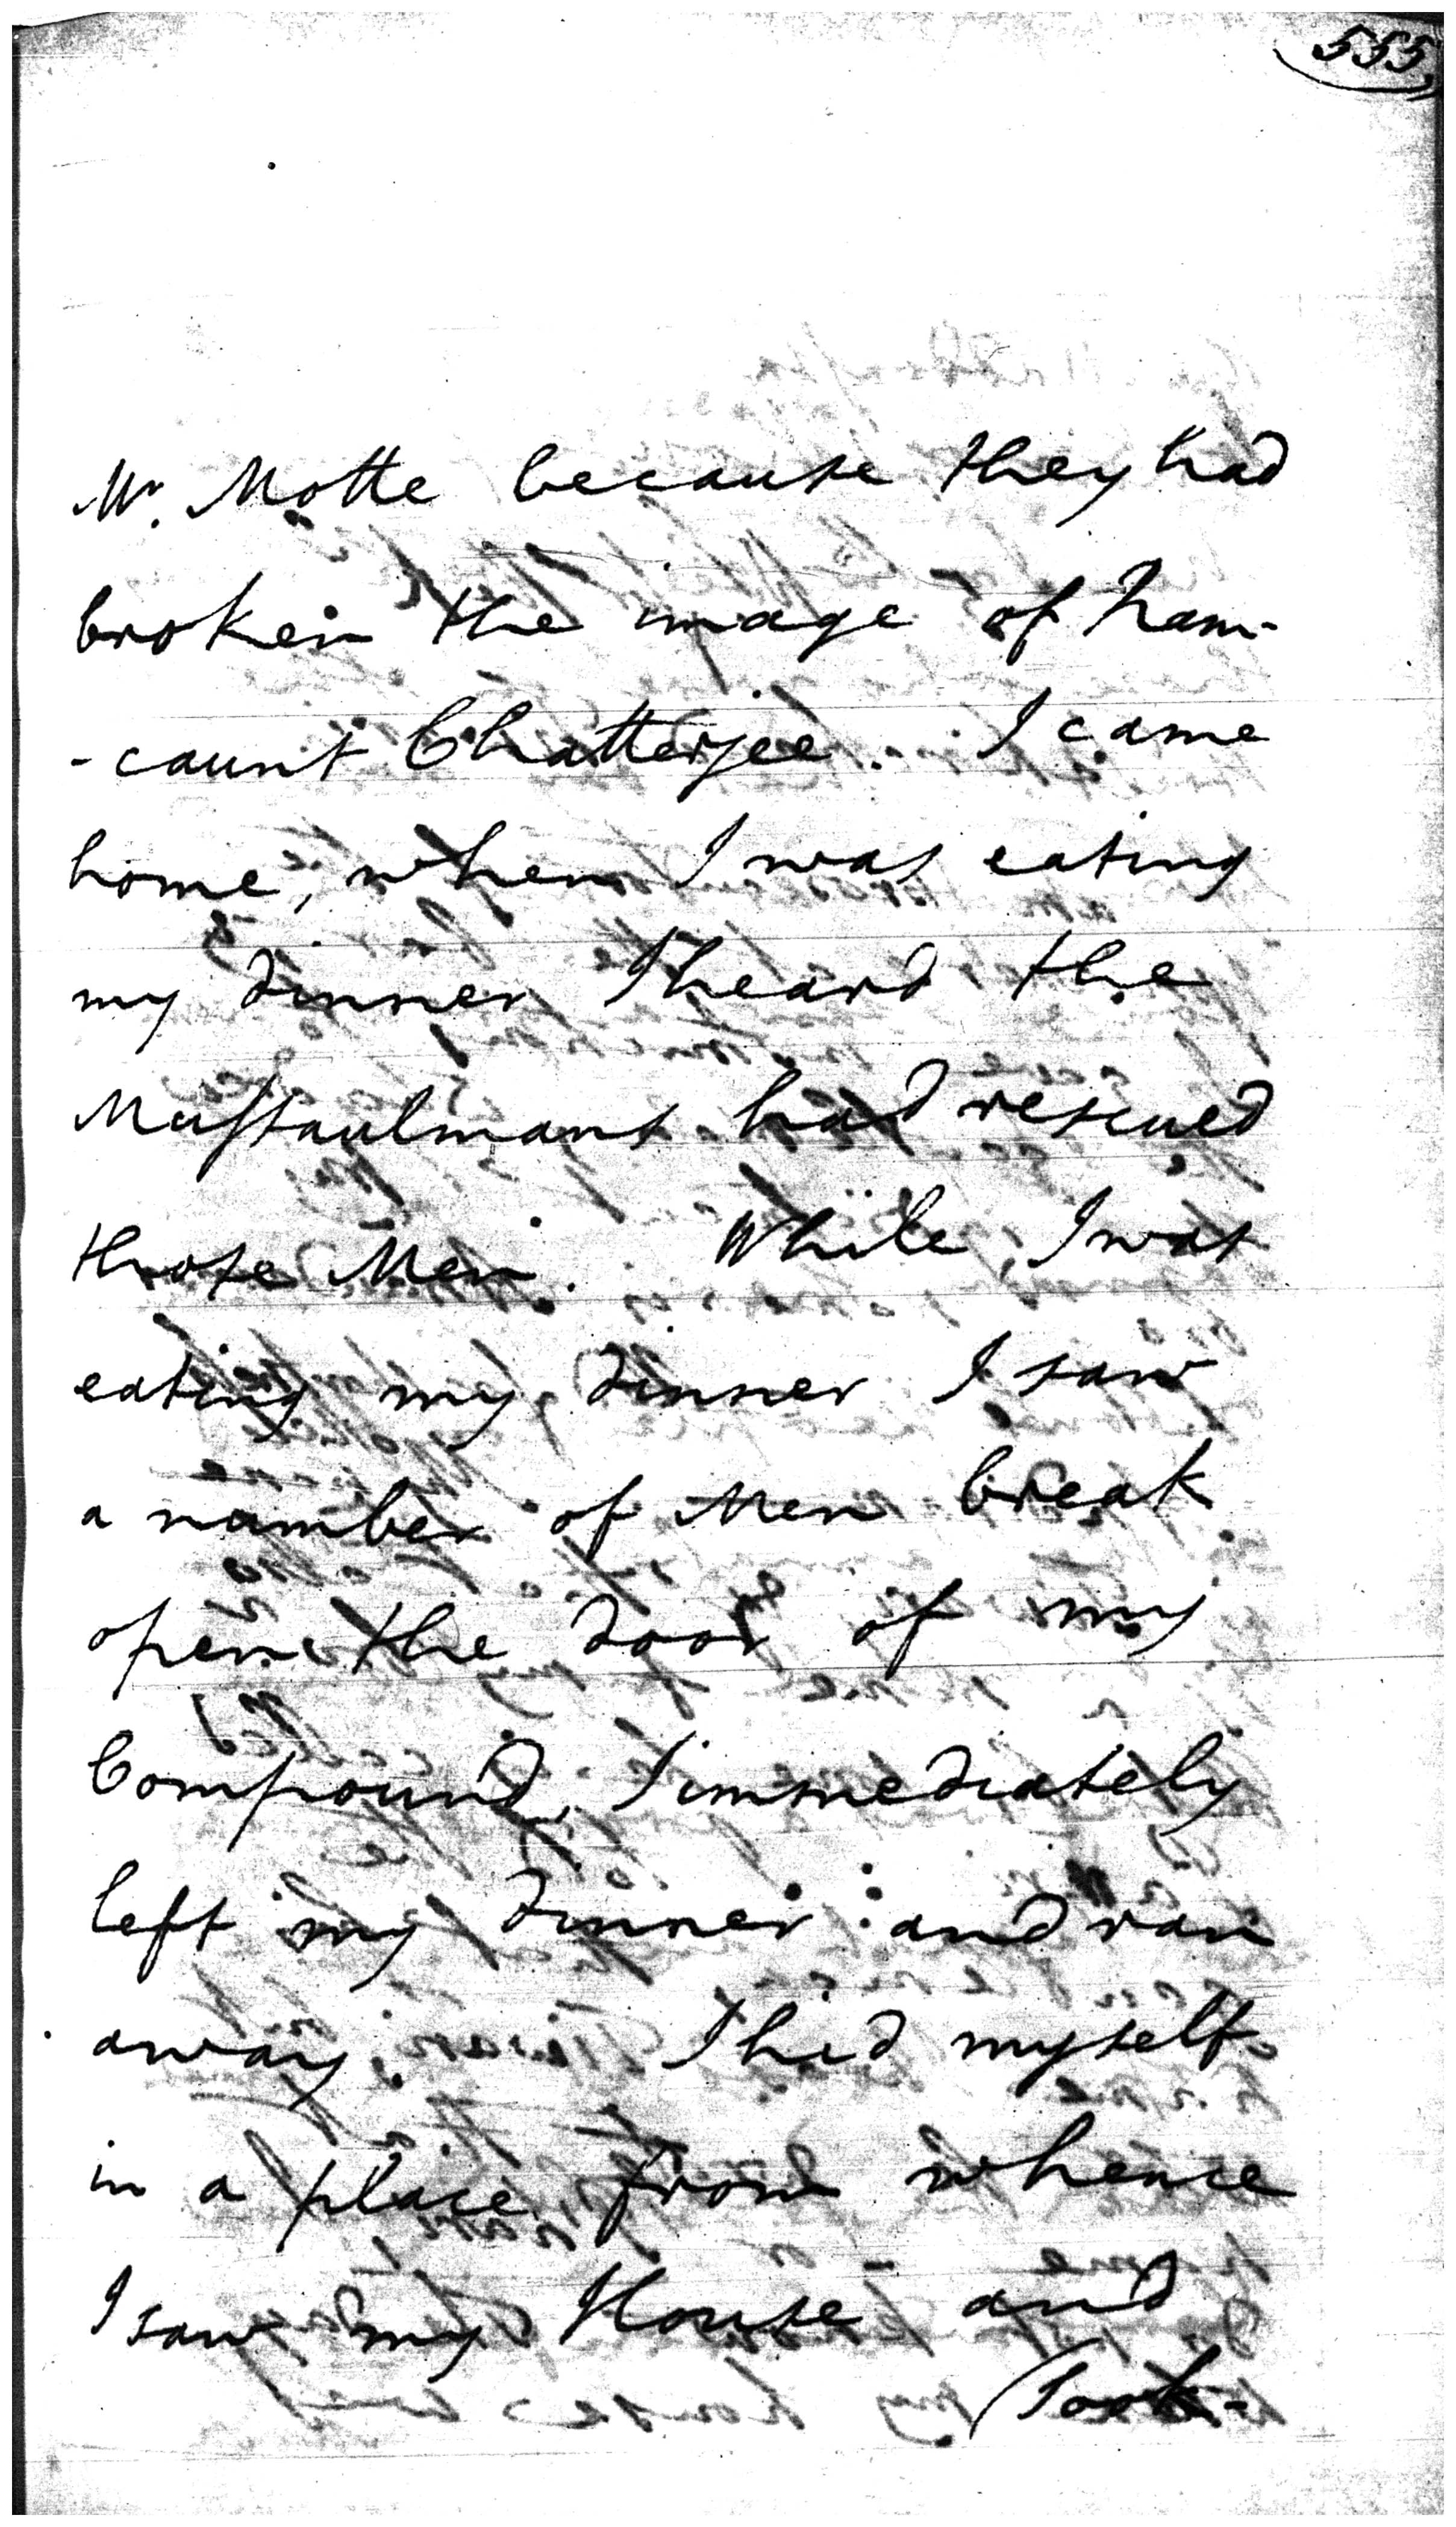 555
Mr. Motte because they had
broken the image of Ram-
-caunt Chatterjee. I came
home, when I was eating
my dinner I heard the
Mussaulmans had rescued
those Men. While, I was
eating my dinner I saw
a number of Men break
open the door of my
Compound, I immediately
left my dinner and ran
away. I hid myself
in a place from whence
I saw my House and